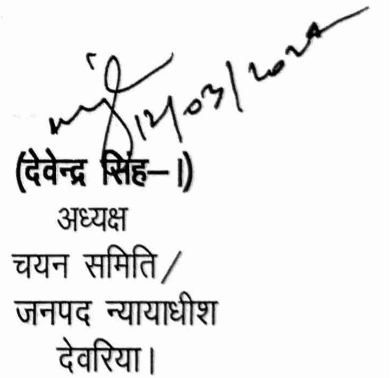 12/03/202
(देवेन्द्र सिंह-।)
अध्यक्ष
चयन समिति/
जनपद न्यायाधीश
देवरिया।